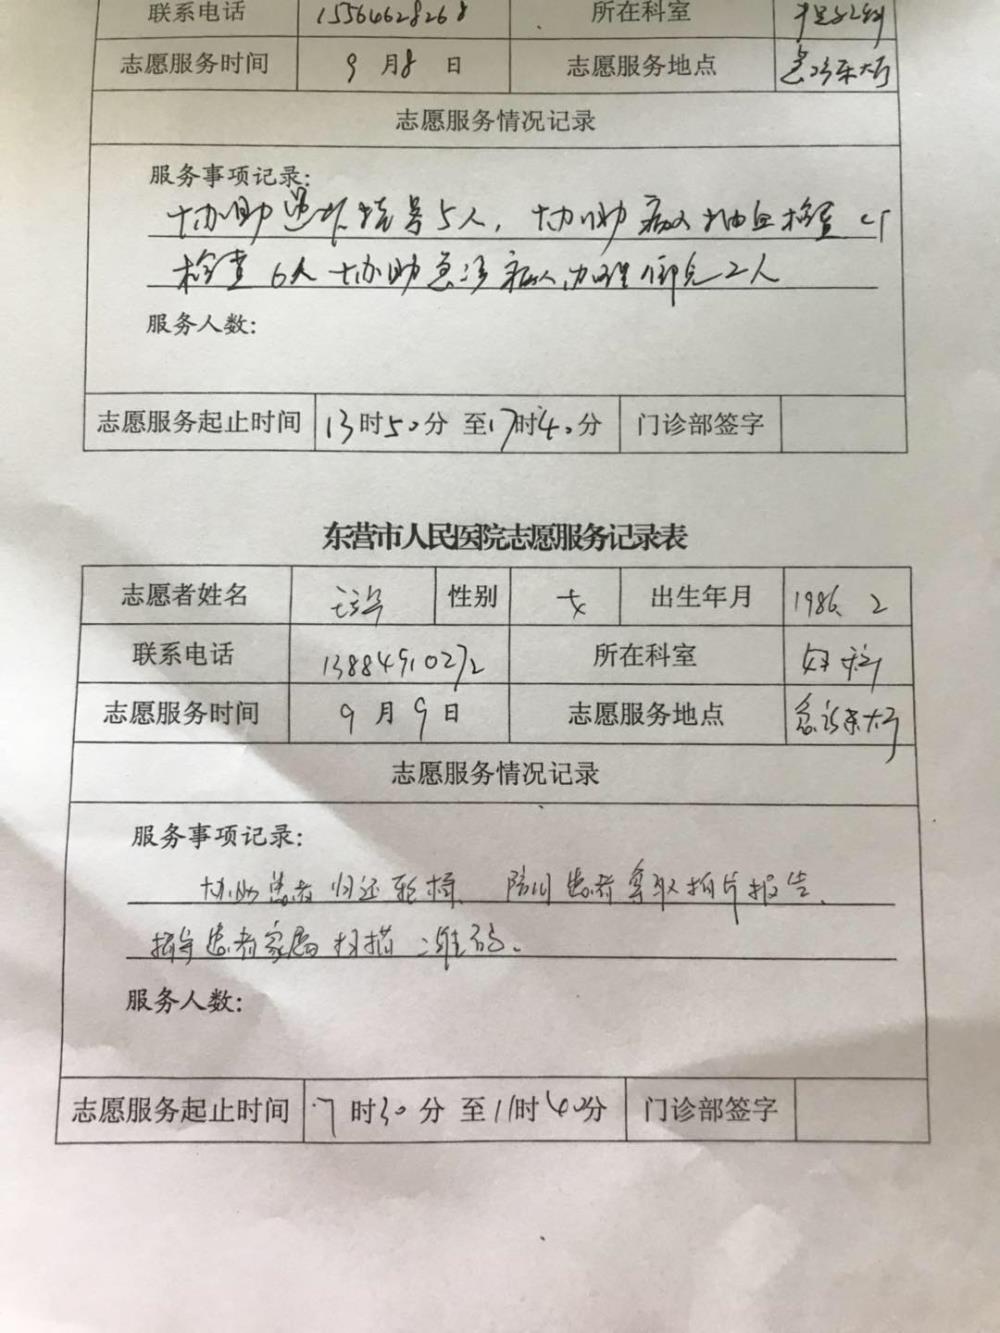 联系电话 15564628268 所在科室
志愿服务时间 9月8日 志愿服务地点 急诊东大厅
志愿服务情况记录
服务事项记录:
协助 挂号5人, 协助病人抽血检查 CT
检查6人 协助急诊病人办理 2人
服务人数:
志愿服务起止时间 13时50分 至17时40分 门诊部签字
东营市人民医院志愿服务记录表
志愿者姓名 性别 女 出生年月 1986.2
联系电话 13884910272 所在科室 妇科
志愿服务时间 9月9日 志愿服务地点 急诊东大厅
志愿服务情况记录
服务事项记录:
协助患者归还轮椅、陪同患者拿取拍片报告、
指导患者家属扫描二维码。
服务人数:
志愿服务起止时间 7时30分 至11时40分 门诊部签字